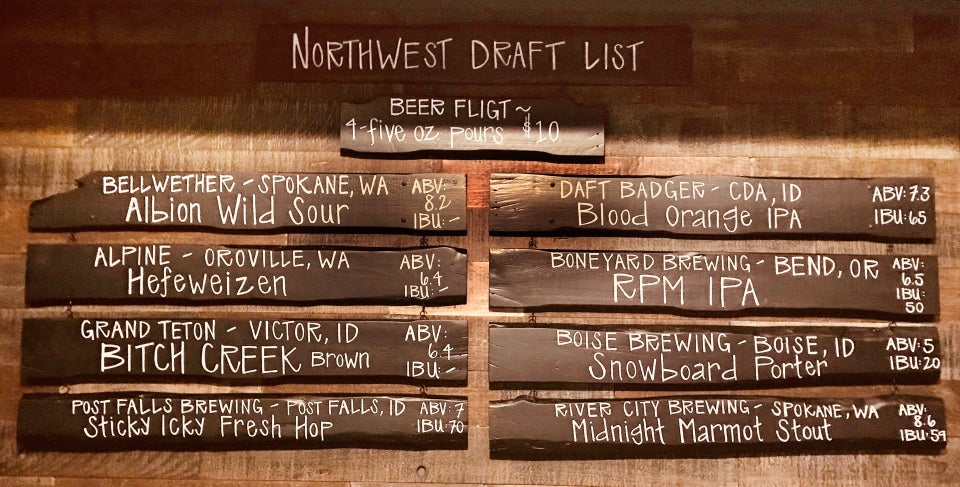 NORTHWEST DRAFT LIST
BEER FLIGT ~
4-five oz pours $10
BELLWETHER - SPOKANE, WA ABV:
Albion Wild Sour 8.2
IBU: -
ALPINE - OROVILLE, WA ABV:
Hefeweizen 6.4
IBU: -
GRAND TETON - VICTOR, ID ABV:
BITCH CREEK Brown 6.4
IBU: -
POST FALLS BREWING - POST FALLS, ID ABV: 7
Sticky Icky Fresh Hop IBU: 70
DAFT BADGER - CDA, ID ABV: 7.3
Blood Orange IPA IBU: 65
BONEYARD BREWING - BEND, OR ABV:
RPM IPA 6.5
IBU:
50
BOISE BREWING - BOISE, ID ABV: 5
Snowboard Porter IBU: 20
RIVER CITY BREWING - SPOKANE, WA ABV:
Midnight Marmot Stout 8.6
IBU: 59